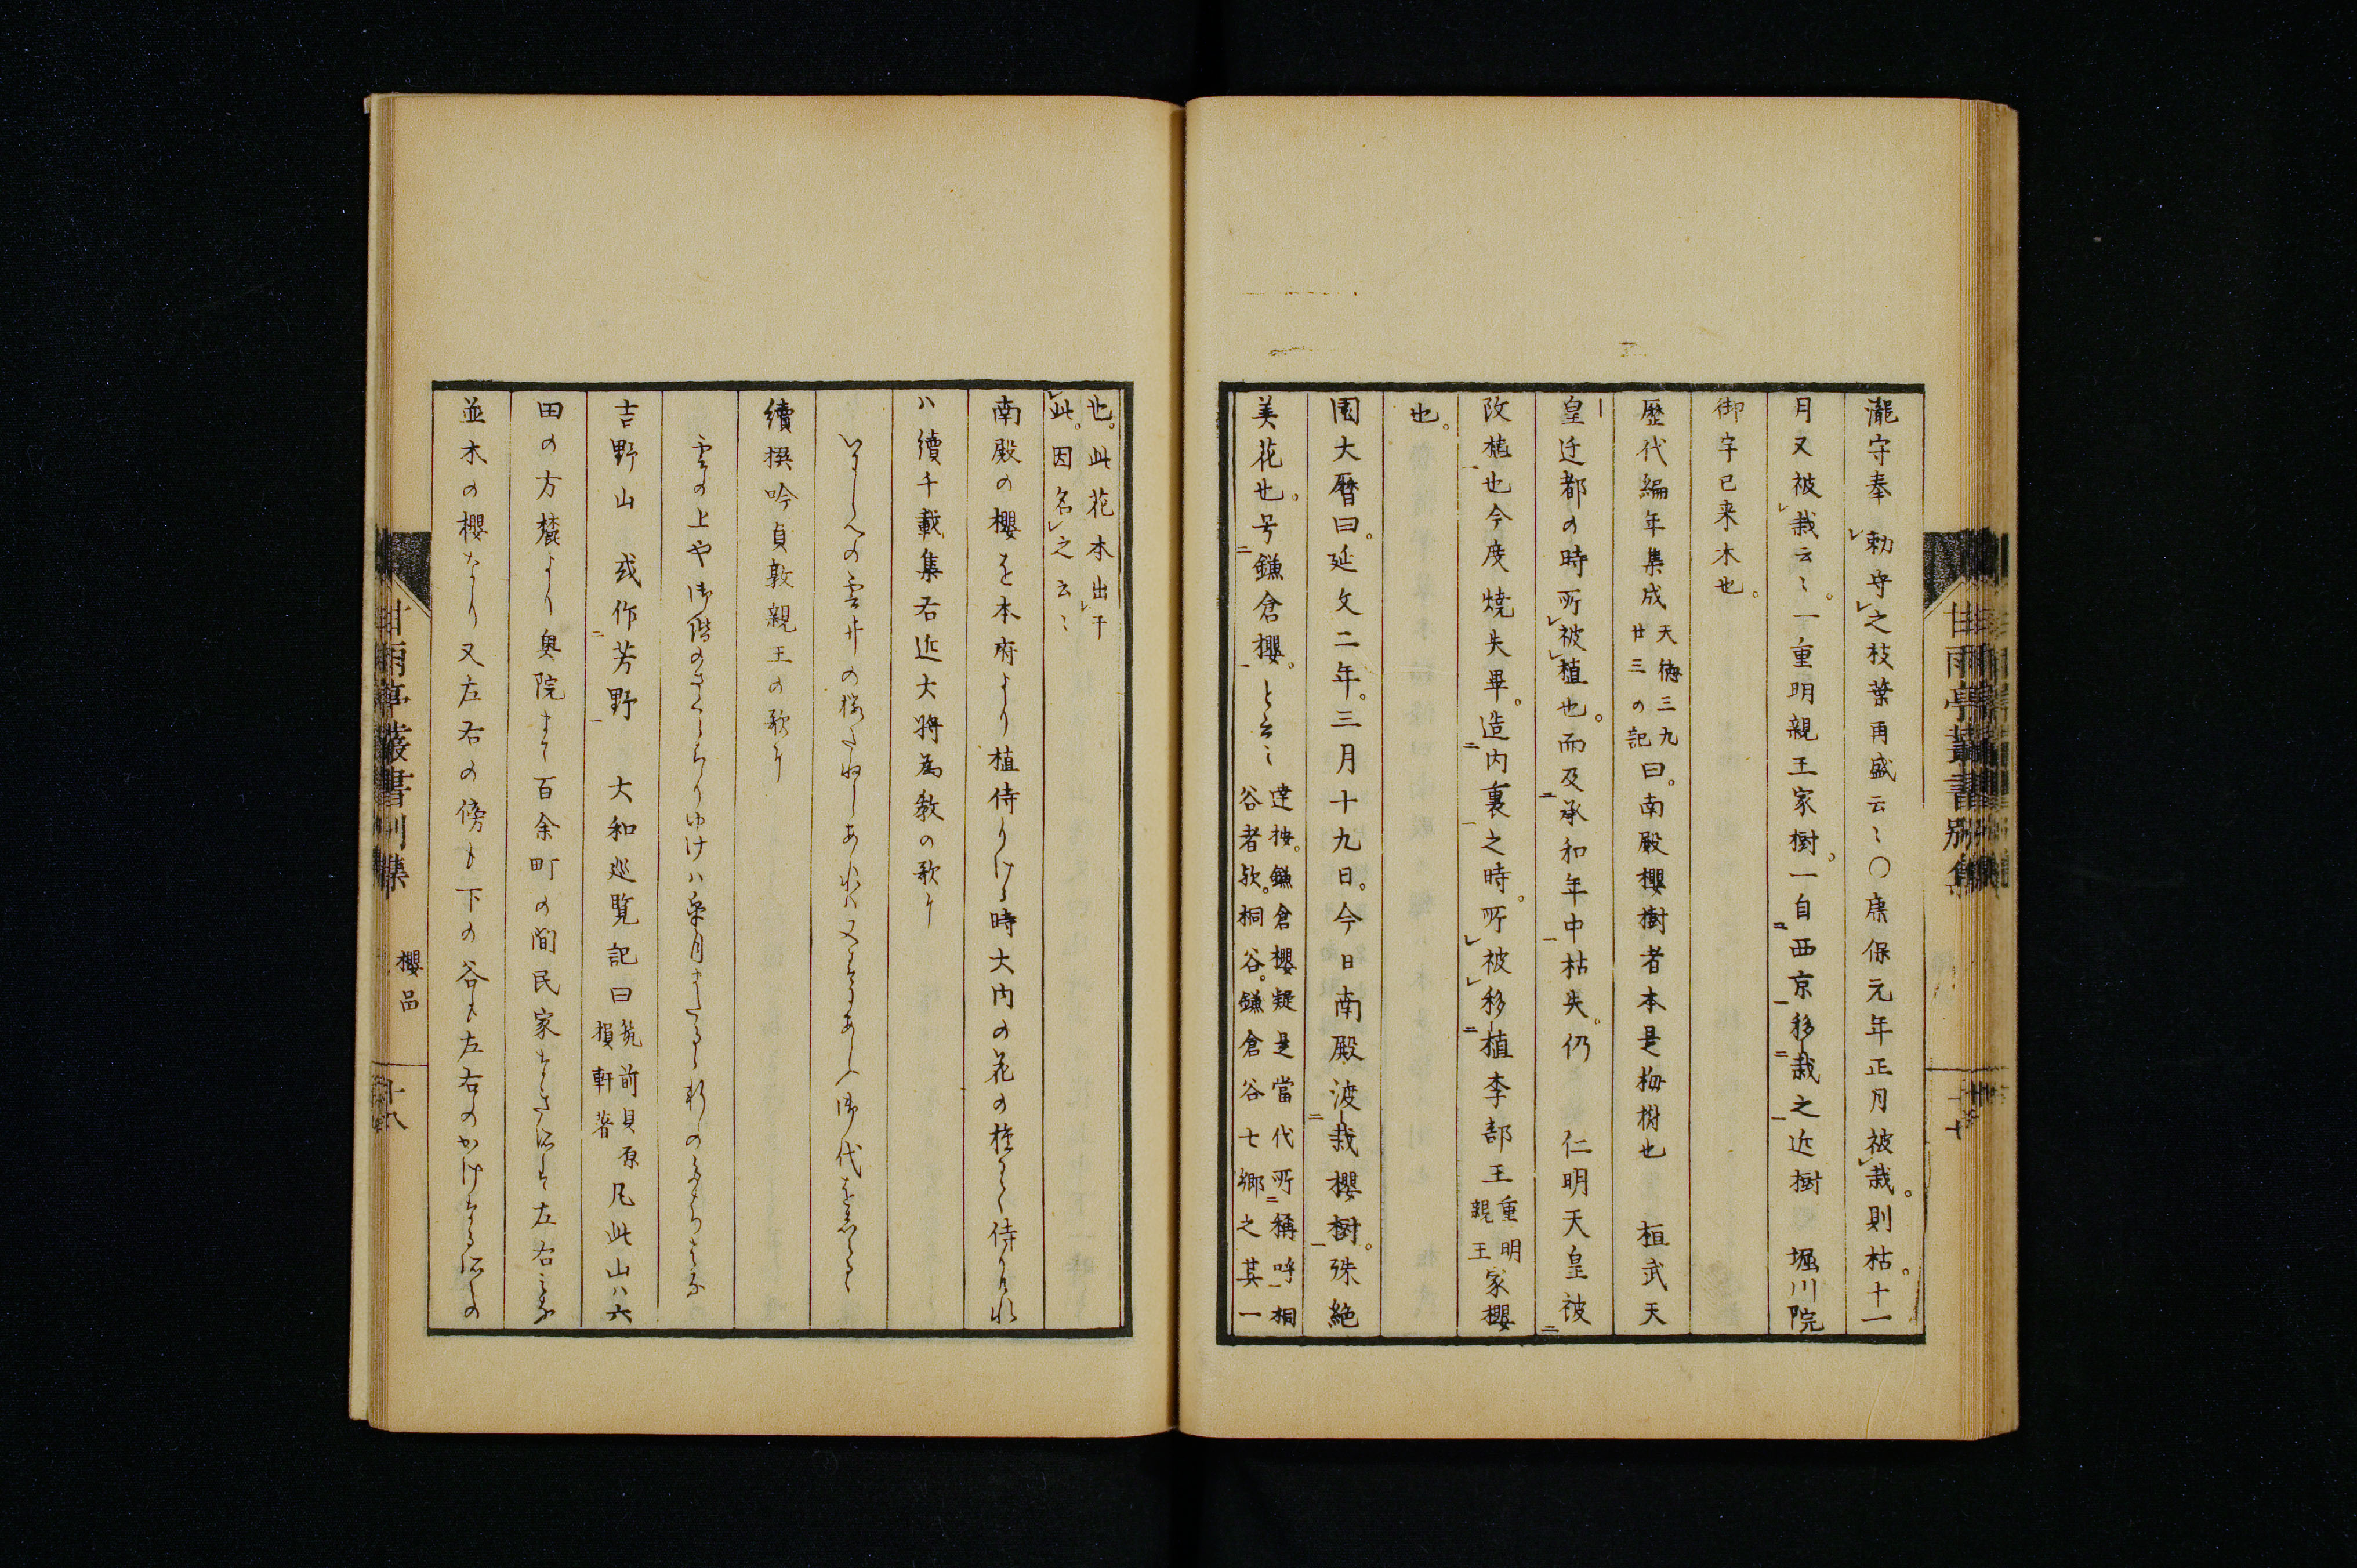 瀧守奉 勅守之枝葉再盛云〻〇康保元年正月被栽。則枯。十一
月又被栽云〻。一重明親王家樹。一自西京移栽之近樹 堀川院
御宇已来木也。
歴代編年集成天徳三九廿三の記曰。南殿櫻樹者本是梅樹也 桓武天
皇迁都の時所被植也。而及承和年中枯失。仍 仁明天皇被
改植也今度燒失畢。造内裏之時。所被移植李部王重明親王家櫻
也。
園大暦曰。延文二年。三月十九日。今日南殿渡栽櫻樹。殊絶
美花也。号鎌倉櫻。と云〻達按。鎌倉櫻疑是當代所稱呼桐谷者欤。桐谷。鎌倉谷七郷之其一
也。此花本出于此。因名之云〻
南殿の櫻を本府より植侍りける時大内の花の種にて侍りけれ
ハ續千載集右近大將為教の歌に
いにしへの雲井の櫻たねしあれハ又春にあふ御代そしるる
續撰吟貞敦親王の歌に
雲の上や御階のさくらちりゆけハ
吉野山 或作芳野 大和巡覧記曰筑前貝原損軒著凡此山ハ六
田の方麓より奥院まて百余町の間民家なき所は左右みな
並木の櫻なり又左右の傍も下の谷も左右のかけなる所もの
甘雨亭叢書別集
櫻品
十八